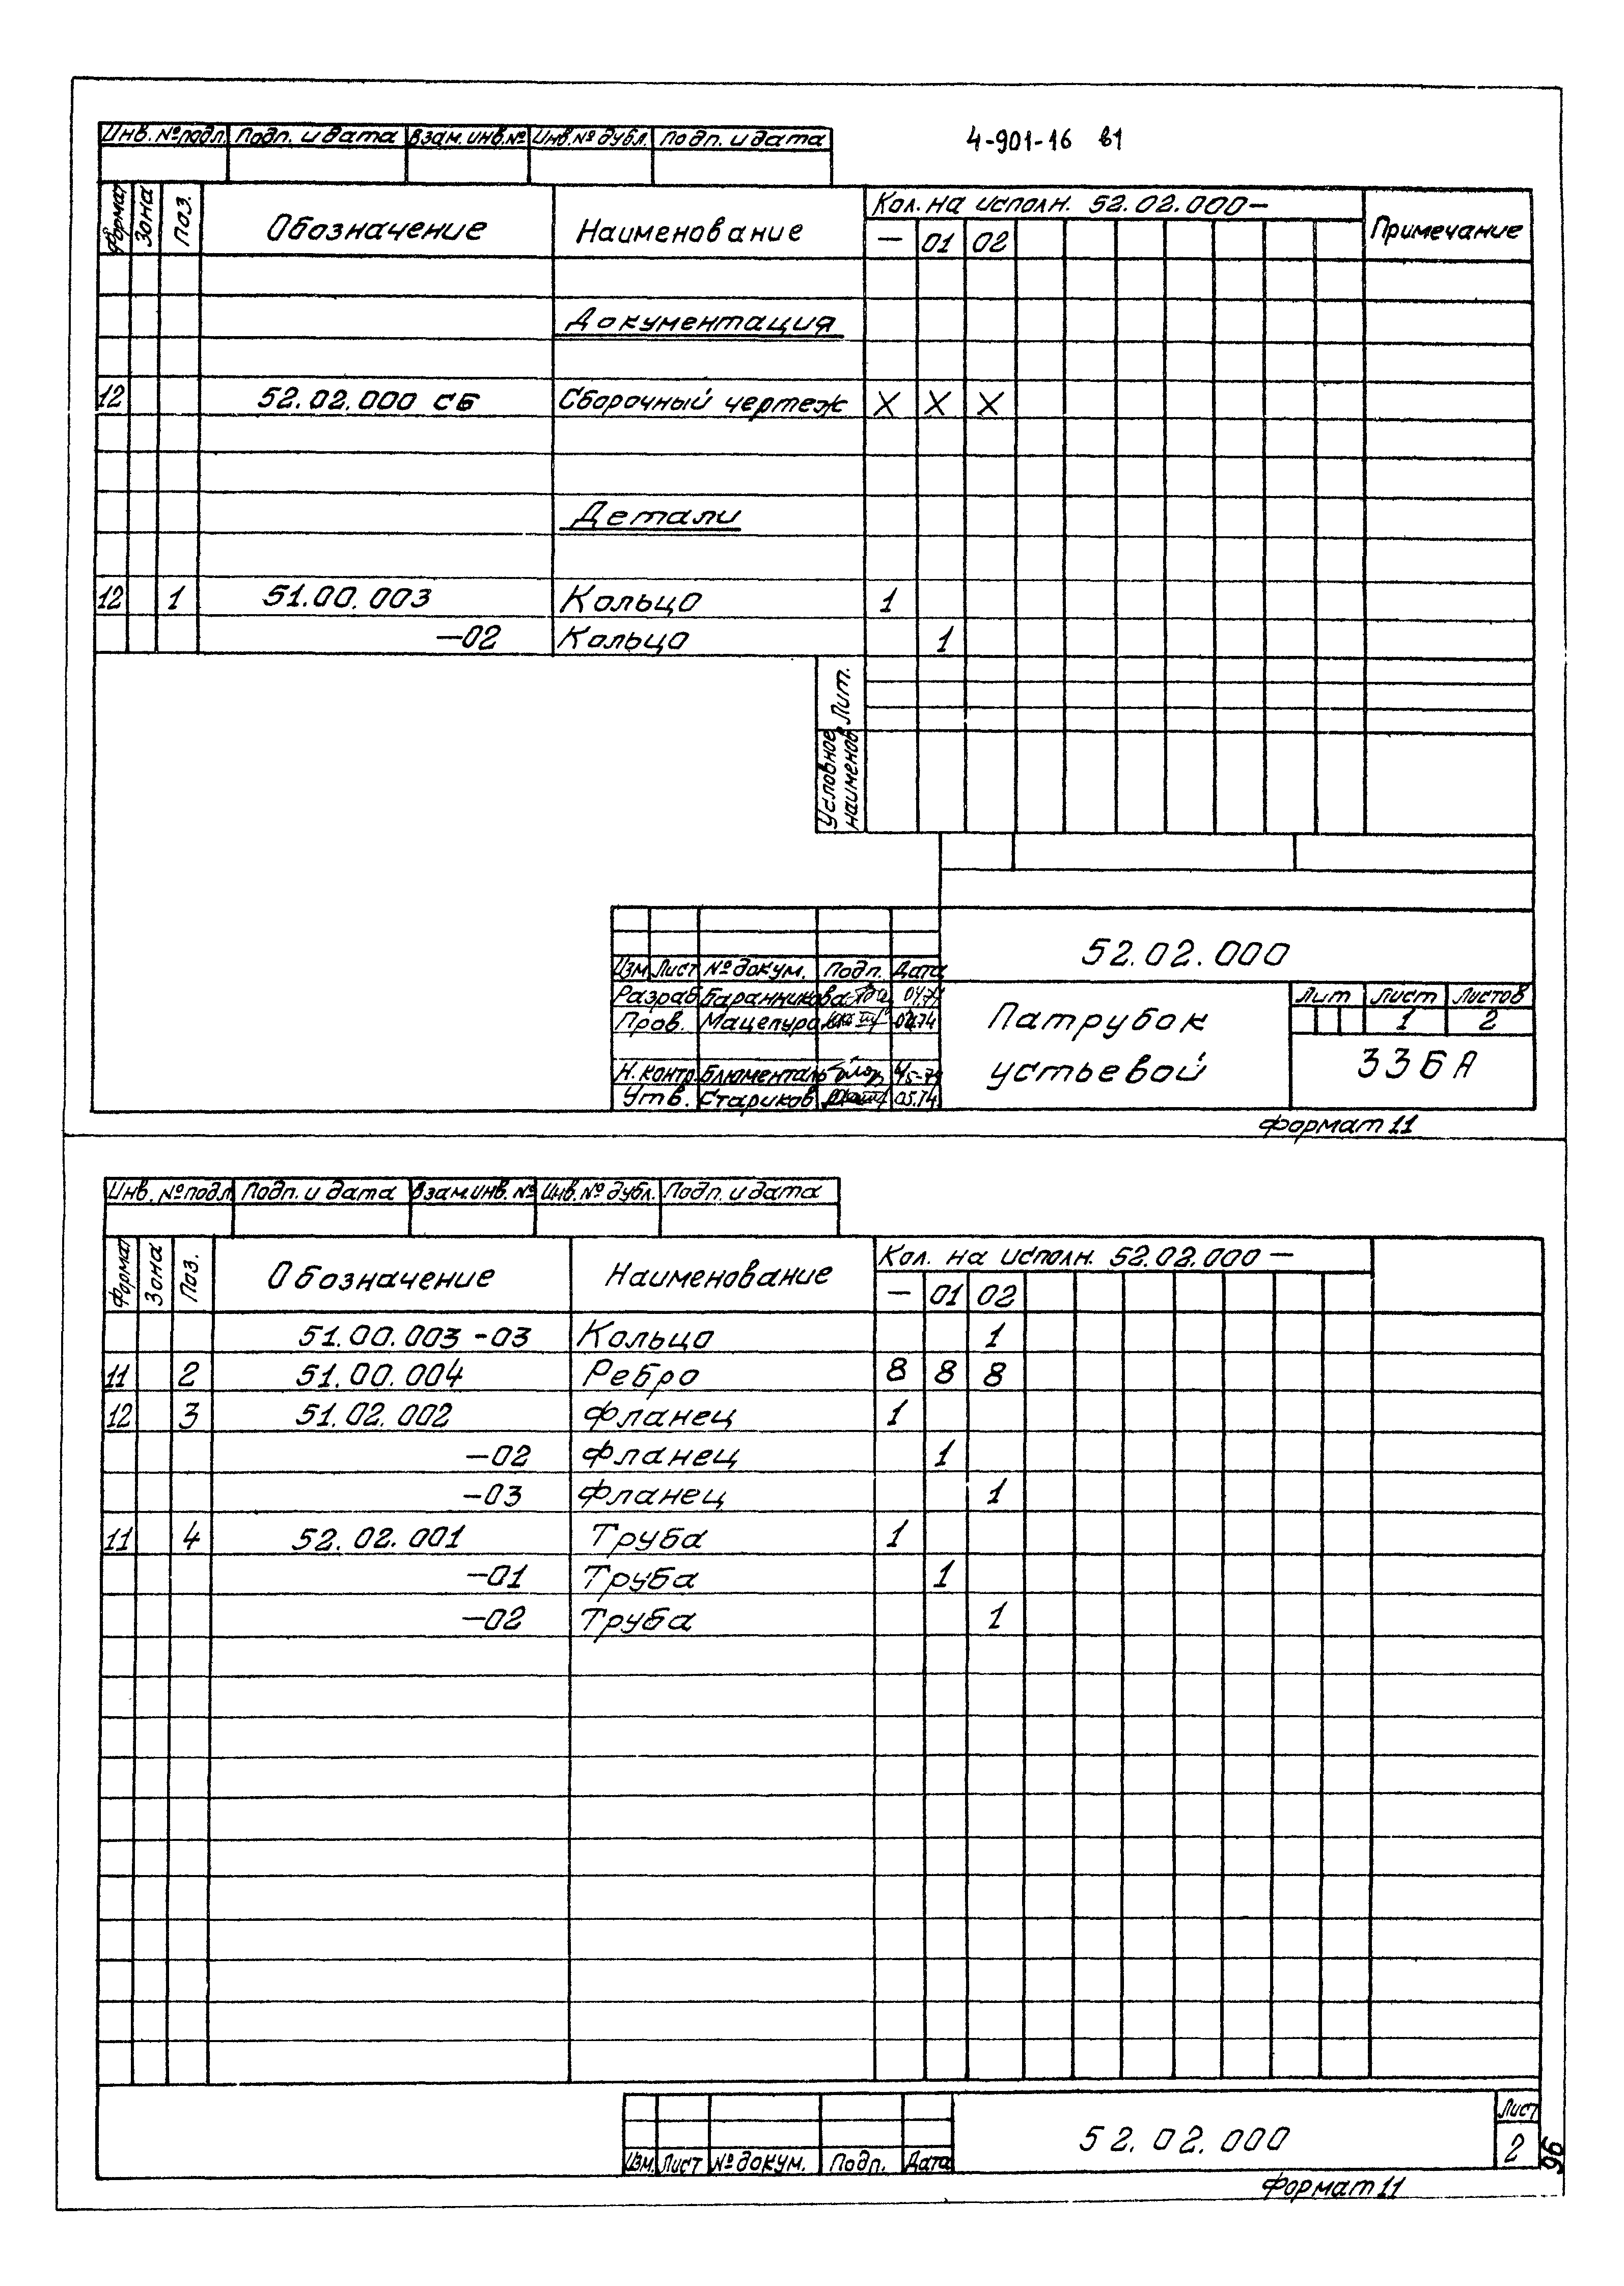 4-901-16 в1
Инв. № подл. Подп. и дата Взам. инв. № Инв. № дубл. Подп. и дата
Формат Зона Поз. Обозначение Наименование Кол. на исполн. 52.02.000— Примечание
— 01 02
Документация
12 52.02.000 СБ Сборочный чертеж X X X
Детали
12 1 51.00.003 Кольцо 1
—02 Кольцо 1
Лит.
Условное наименов.
52.02.000
Изм Лист № докум. Подп. Дата
Разраб Баранникова 04.74
Пров. Мацепура 04.74
Н. контр. Блюменталь
Утв. Стариков 05.74
Патрубок
устьевой
Лит Лист Листов
1 2
33БА
Формат 11
Инв. № подл. Подп. и дата Взам. инв. № Инв. № дубл. Подп. и дата
Формат Зона Поз. Обозначение Наименование Кол. на исполн. 52.02.000—
— 01 02
51.00.003 -03 Кольцо 1
11 2 51.00.004 Ребро 8 8 8
12 3 51.02.002 Фланец 1
—02 Фланец 1
—03 Фланец 1
11 4 52.02.001 Труба 1
—01 Труба 1
—02 Труба 1
Изм. Лист № докум. Подп. Дата
52.02.000
Лист
2
96
Формат 11